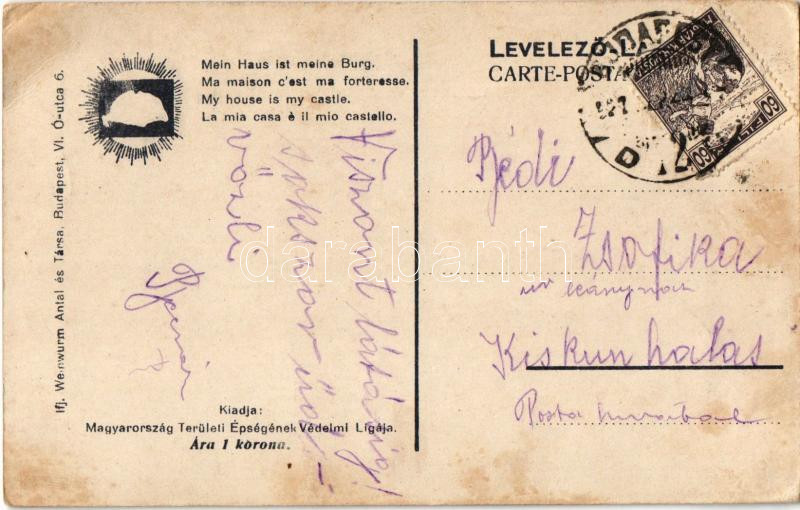 Mein Haus ist meine Burg.
Ma maison c'est ma forteresse.
My house is my castle.
La mia casa è il mio castello.
Viszont látásig!
sokszor
Kiadja:
Magyarország Területi Épségének Védelmi Ligája.
Ára 1 korona.
Ifj. Weinwurm Antal és Társa, Budapest, VI. Ó-utca 6.
LEVELEZŐ-L
CARTE-POSTA
60
60
Zsofika
leánynak
Kiskunhalas
Posta
darabanth